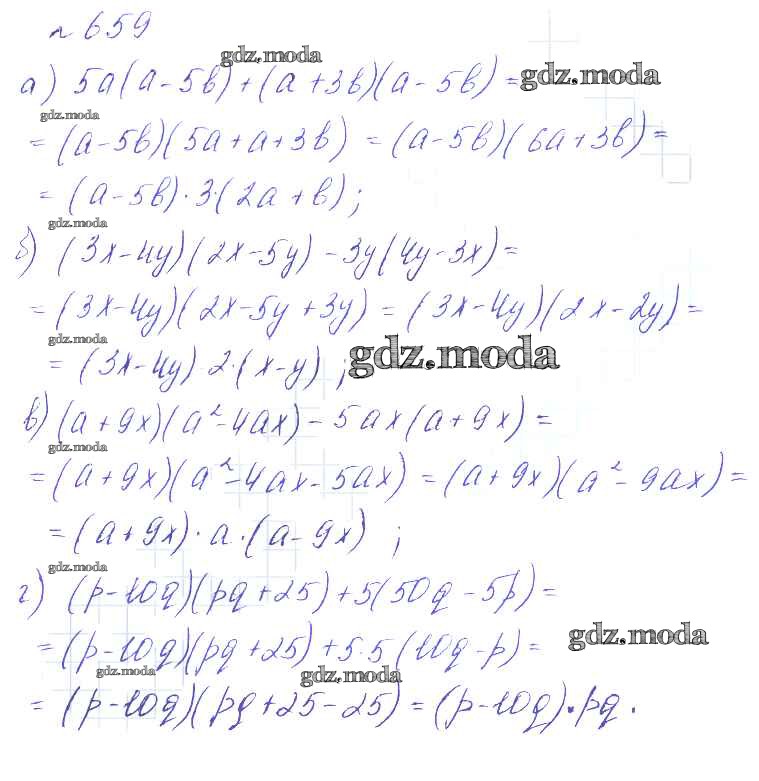 № 659
gdz.moda
а) 5a(a-5b)+(a+3b)(a-5b)=
gdz.moda
gdz.moda
=(a-5b)(5a+a+3b)=(a-5b)(6a+3b)=
=(a-5b)·3·(2a+b);
gdz.moda
б) (3x-4y)(2x-5y)-3y(4y-3x)=
=(3x-4y)(2x-5y+3y)=(3x-4y)(2x-2y)=
gdz.moda
=(3x-4y)·2·(x-y);
gdz.moda
в) (a+9x)(a²-4ax)-5ax(a+9x)=
gdz.moda
=(a+9x)(a²-4ax-5ax)=(a+9x)(a²-9ax)=
=(a+9x)·a·(a-9x);
gdz.moda
г) (p-10q)(pq+25)+5(50q-5p)=
=(p-10q)(pq+25)+5·5(10q-p)=
gdz.moda
gdz.moda
gdz.moda
=(p-10q)(pq+25-25)=(p-10q)·pq.